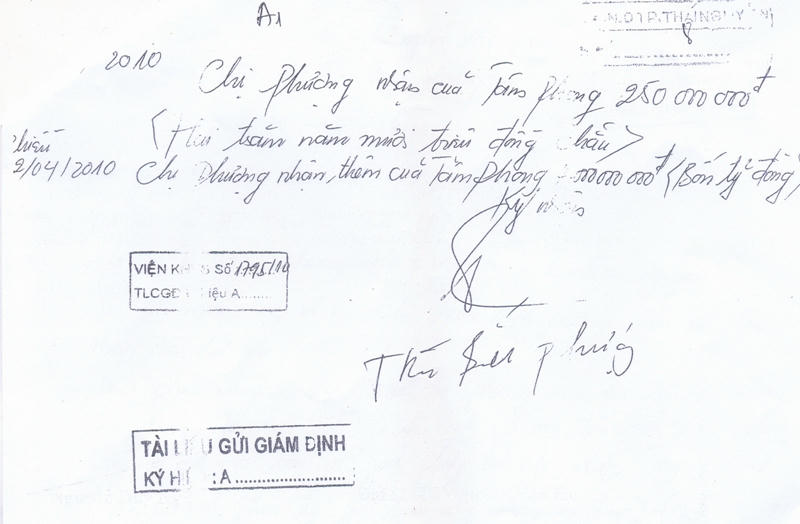 A1
2010
Chị Phượng nhận của Tám Phong 250 000 000đ
<Hai trăm năm mươi triệu đồng chẵn>
chiều
2/04/2010 Chị Phượng nhận thêm của Tám Phong 000 000 000đ <Bốn tỷ đồng>
Ký nhận
VIỆN KH Số 1795/10
TLCGĐ hiệu A........
Phượng
TÀI LIỆU GỬI GIÁM ĐỊNH
KÝ HI : A ........................